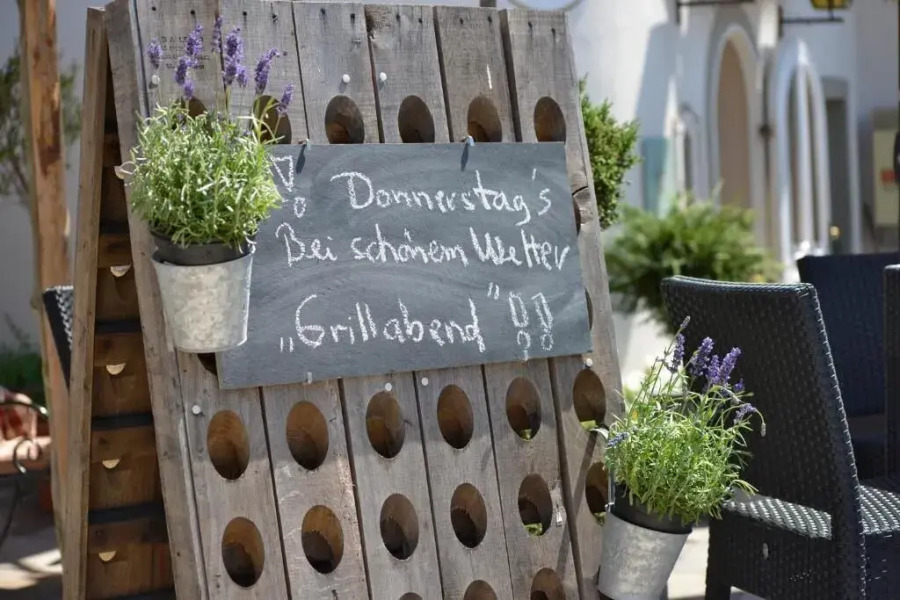 ! Donnerstag's
Bei schönem Wetter
„Grillabend" !!